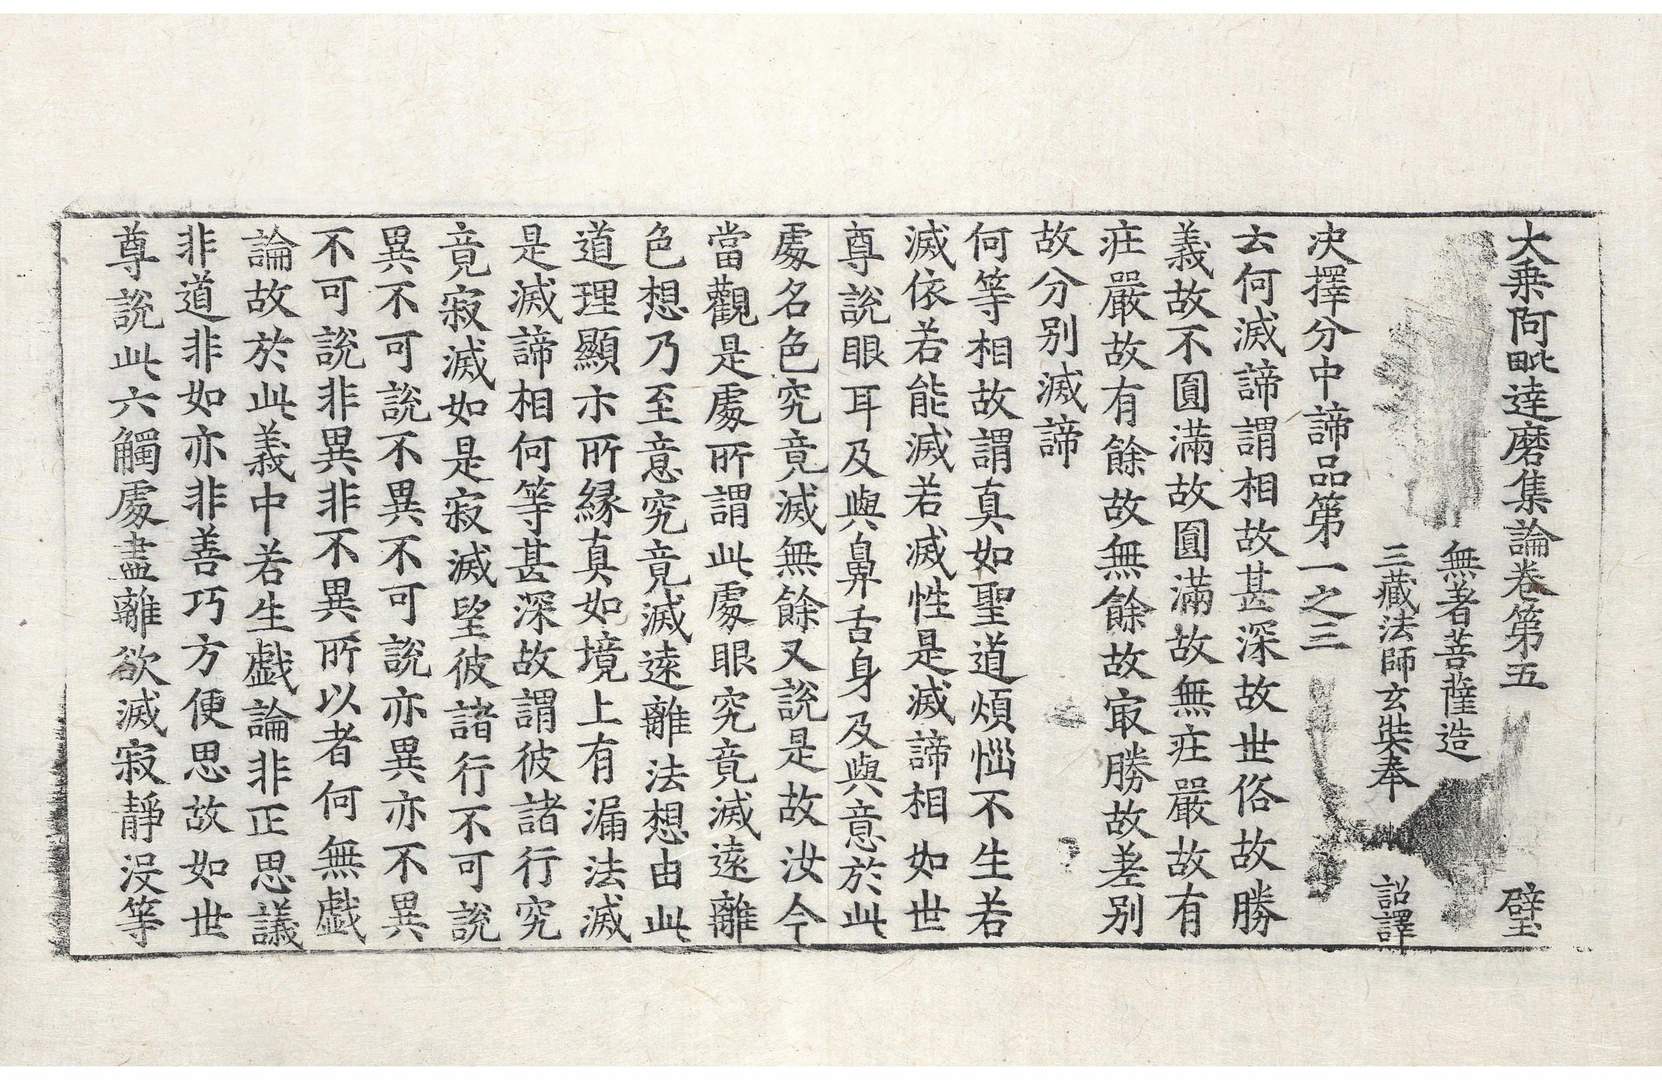 大乗阿毗達磨集論卷第五　璧
無著菩薩造
三藏法師玄奘奉　詔譯
决擇分中諦品第一之三
云何滅諦謂相故甚深故世俗故勝
義故不圓滿故圓滿故無庄嚴故有
庄嚴故有餘故無餘故㝡勝故差别
故分别滅諦
何等相故謂真如聖道煩惱不生若
滅依若能滅若滅性是滅諦相如世
尊說眼耳及與鼻舌身及與意於此
處名色究竟滅無餘又說是故汝今
當觀是處所謂此處眼究竟滅遠離
色想乃至意究竟滅遠離法想由此
道理顯示所縁真如境上有漏法滅
是滅諦相何等甚深故謂彼諸行究
竟寂滅如是寂滅望彼諸行不可說
異不可說不異不可說亦異亦不異
不可說非異非不異所以者何無戱
論故於此義中若生戱論非正思議
非道非如亦非善巧方便思故如世
尊說此六觸處盡離欲滅寂靜没等